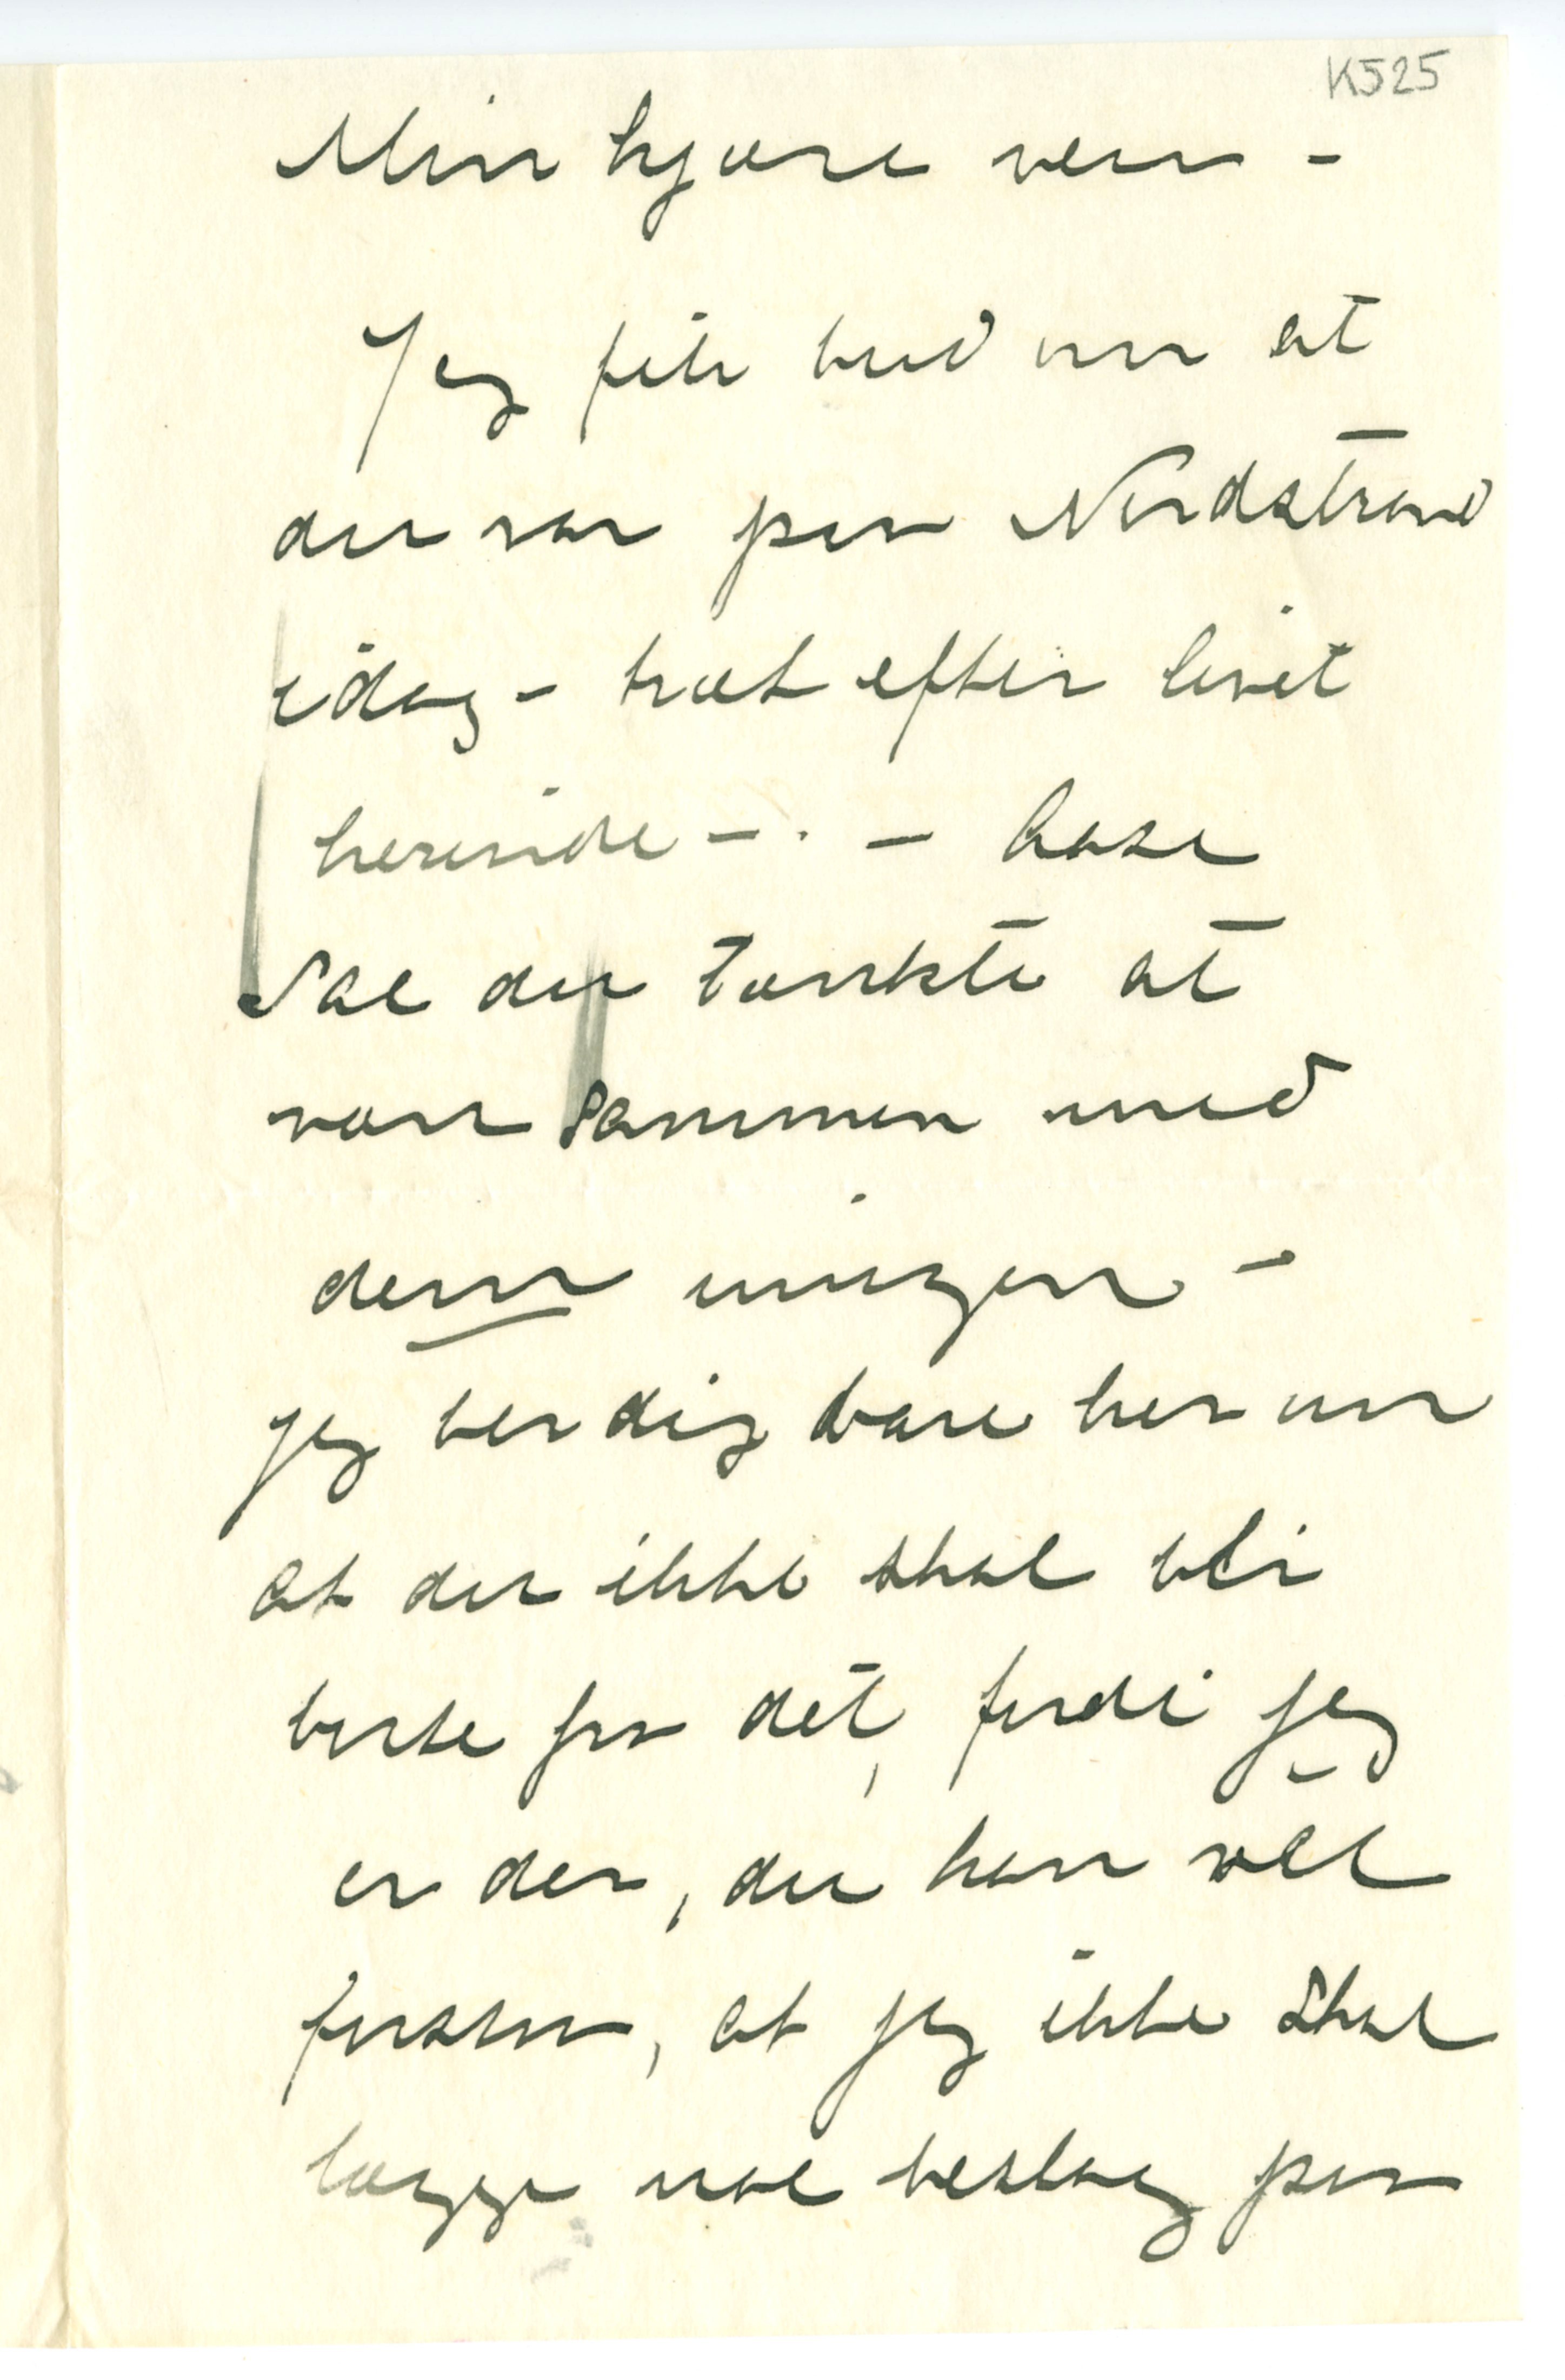 K525
Min kjære ven -
Jeg fik bud om at
du var paa Nordstrand
idag - træt efter livet
herinde - . - Aase
sae du tænkte at
være sammen med
dem imorgen -
jeg ber dig bare her om
at du ikke skal bli
borte fra det, fordi jeg
er der, du kan vel
forstaa, at jeg ikke skal
lægge noe beslag paa